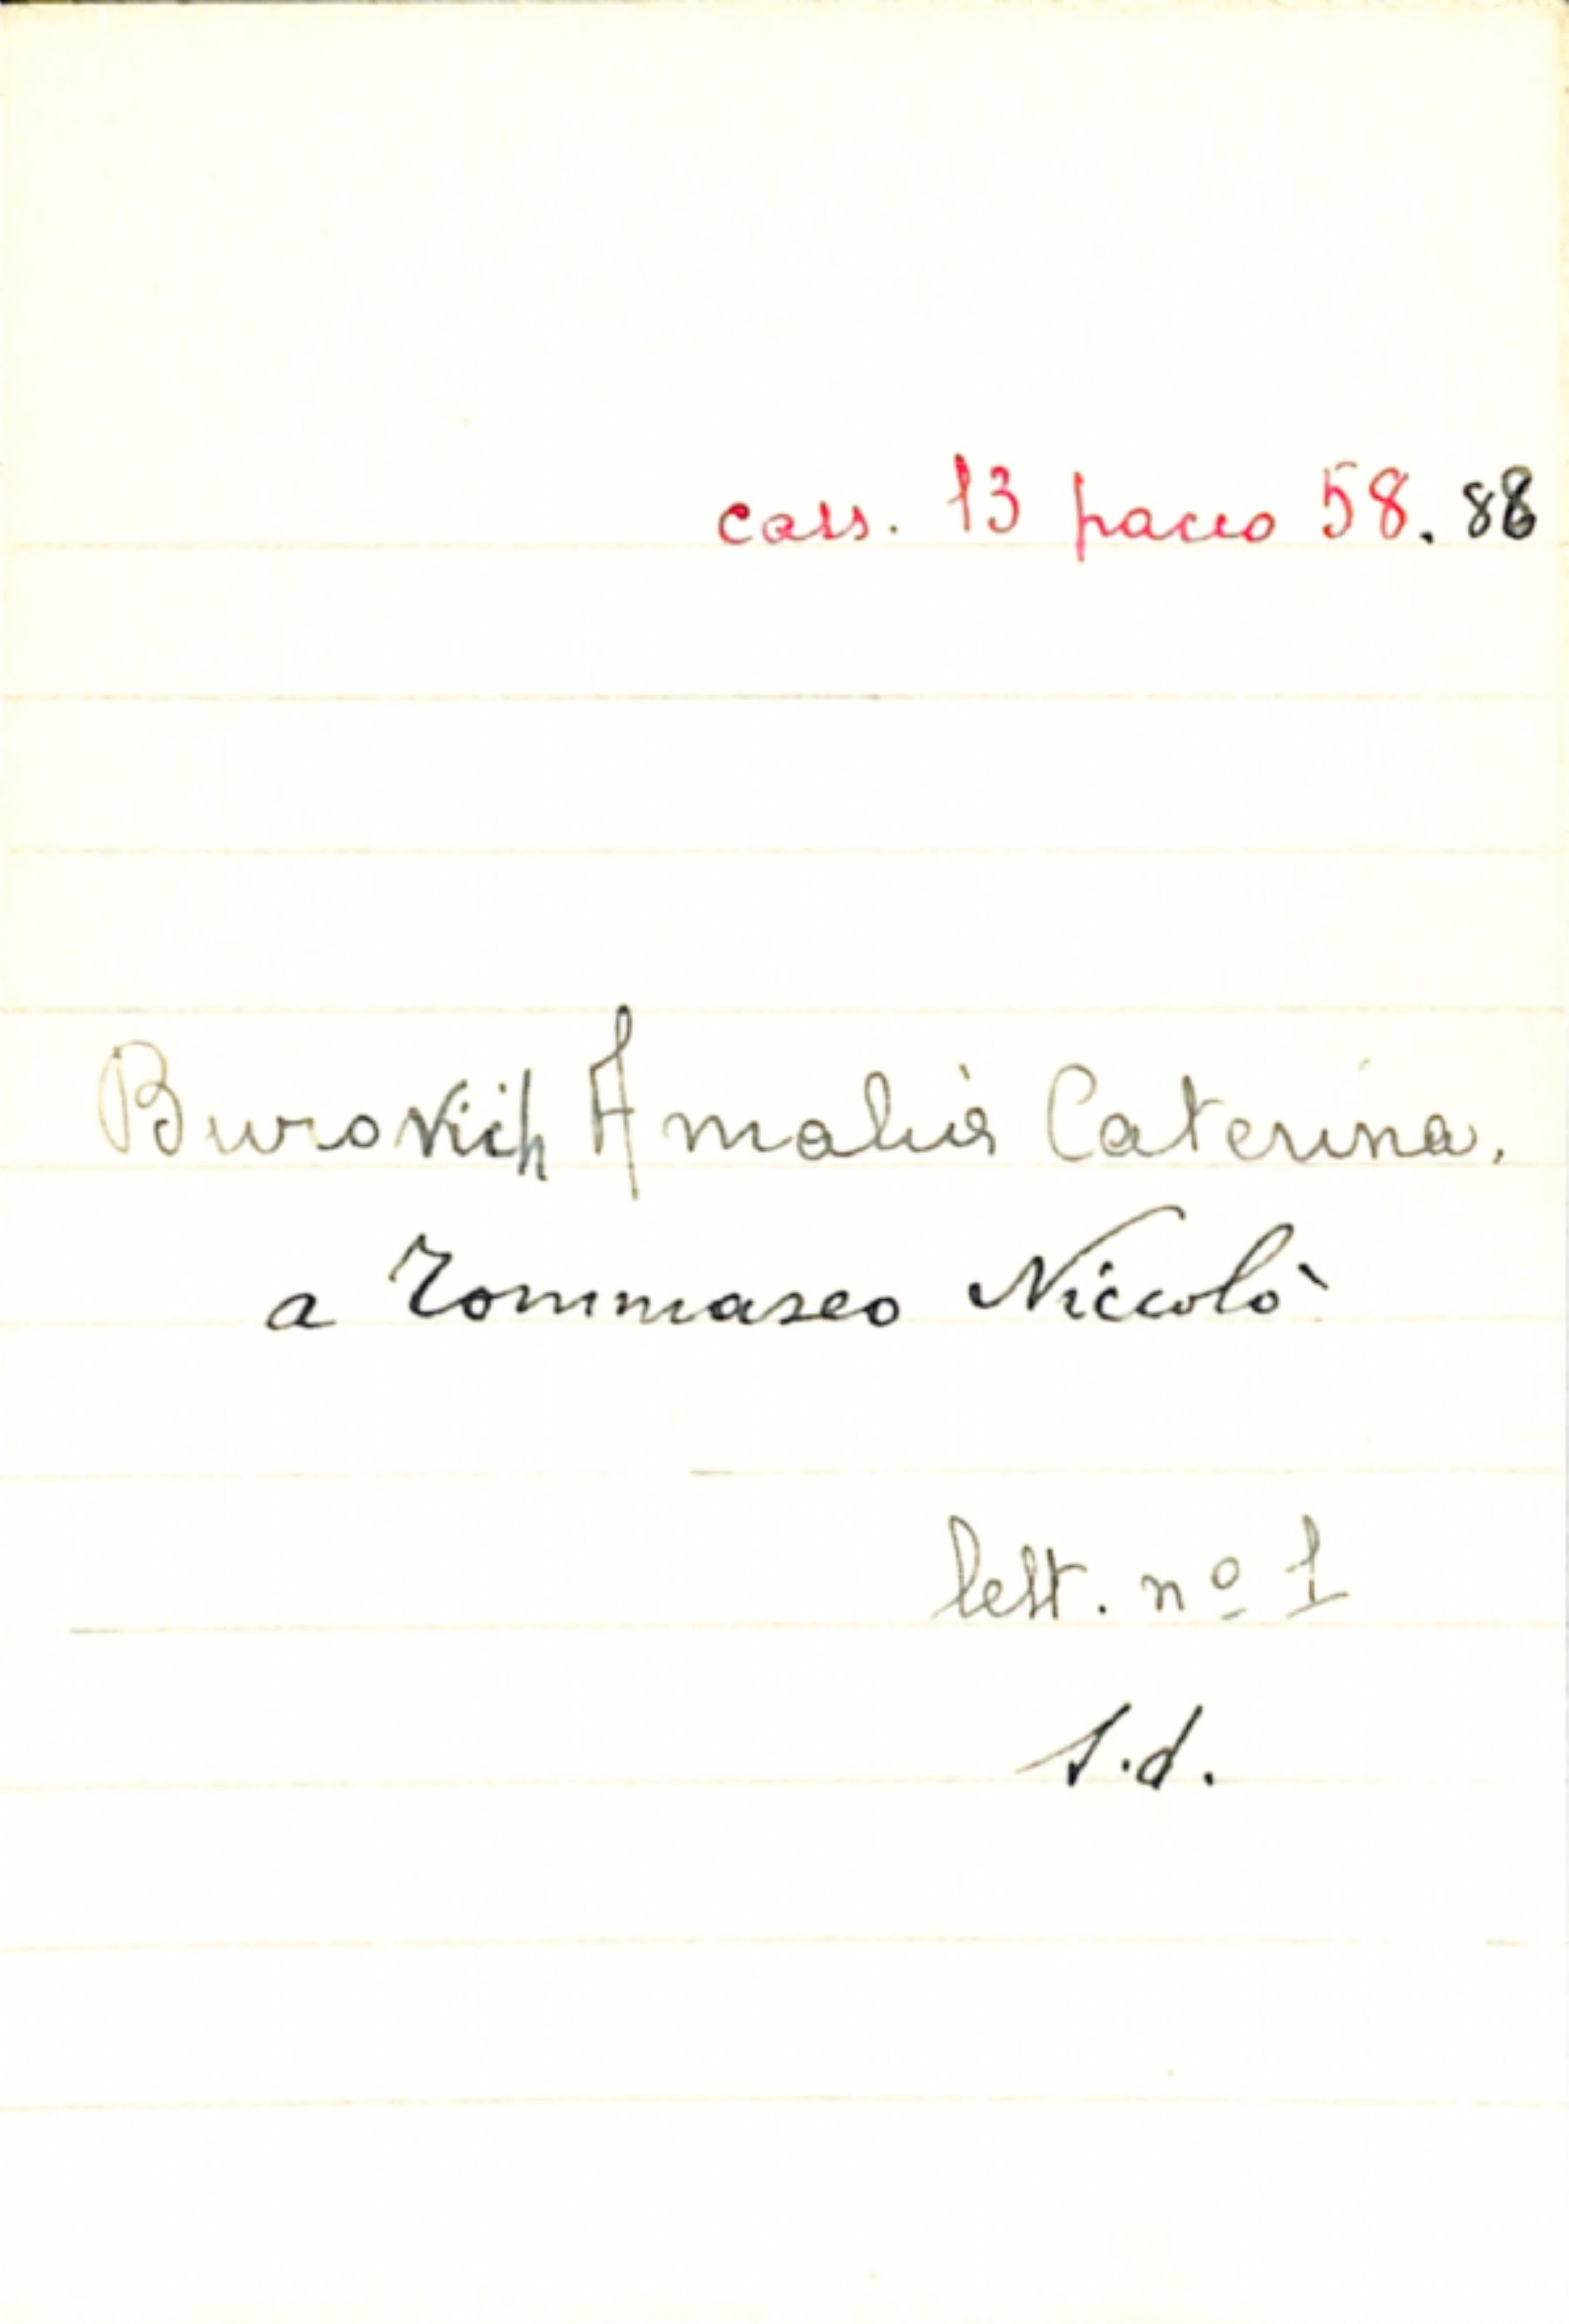 cass. 13 pacco 58. 88
Burovich Amalia Caterina.
a Tommaseo Niccolò
lett. nº 1
s.d.